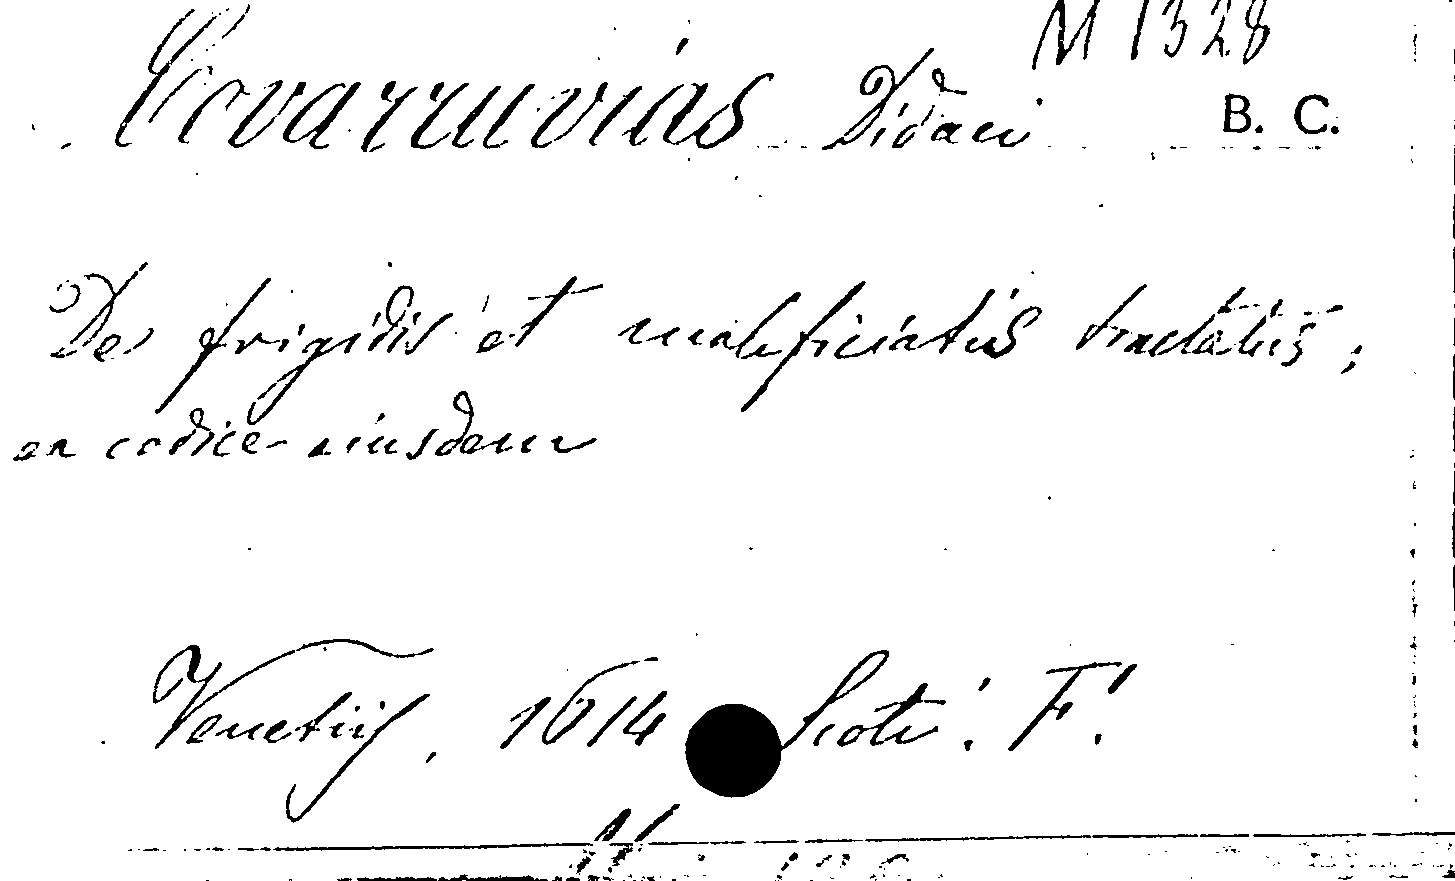 M 1328
Covarruvias Didaci B. C.
De frigidis et maleficiatis tractatus;
ex codice eiusdem
Venetiis, 1614 Scoti. F.